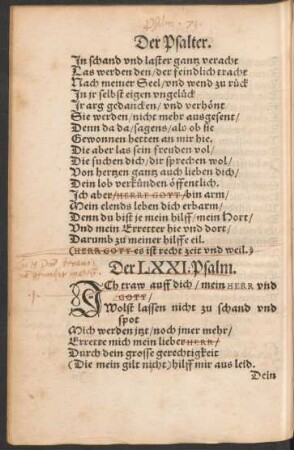 Psalm. 71.
Der Psalter.
In schand vnd laster gantz veracht
Las werden den/ der feindlich tracht
Nach meiner Seel/ vnd wend zu rück
In jr selbst eigen vngelück
Jr arg gedancken/ vnd verhönt
Sie werden/ nicht mehr ausgesent/
Denn da da/ sagens/ als ob sie
Gewonnen hetten an mir hie.
Die aber las sein freuden vol/
Die suchen dich/ dir sprechen wol/
Von hertzen gantz auch lieben dich/
Dein lob verkünden öffentlich.
Ich aber/ HERRE GOTT/ bin arm/
Mein elends leben dich erbarm/
Denn du bist je mein hilff/ mein Hort/
Vnd mein Erretter hie vnd dort/
Darumb zu meiner hilffe eil.
(HERR GOTT es ist recht zeit vnd weil.)
Der LXXI. Psalm.
ICh traw auff dich/ mein HERR vnd
GOTT/
Wolst lassen nicht zu schand vnd
spot
Mich werden jtzt/ noch jmer mehr/
Errette mich mein lieber HERR/
Durch dein grosse gerechtigkeit
(Die mein gilt nicht) hilff mir aus leid.
Dein